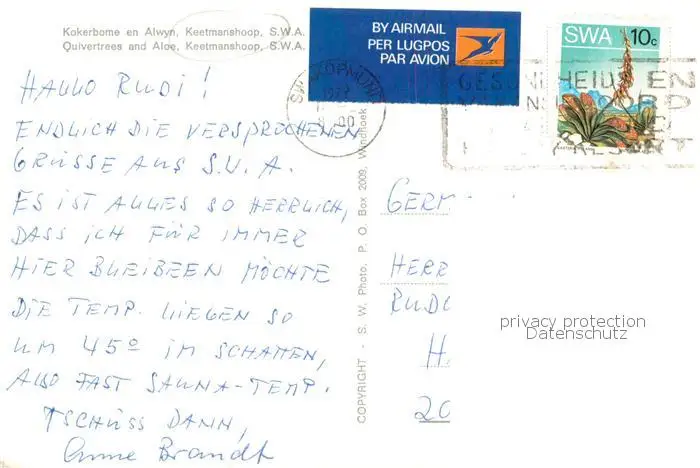 Kokerbome en Alwyn, Keetmanshoop, S.W.A.
Quivertrees and Aloe, Keetmanshoop, S.W.A.
BY AIRMAIL
PER LUGPOS
PAR AVION
SWA 10c
HALLO RUDI!
ENDLICH DIE VERSPROCHENEN
GRÜSSE AUS S.W.A.
ES IST ALLES SO HERRLICH,
DASS ICH FÜR IMMER
HIER BLEIBEEN MÖCHTE
DIE TEMP. LIEGEN SO
UM 45º IM SCHATTEN,
ALSO FAST SAUNA-TEMP.
TSCHÜSS DANN,
Anne Brandt
COPYRIGHT - S. W. Photo. P. O. Box 2009, Windhoek
GERM
HERR
RUDO
H
20
privacy protection
Datenschutz